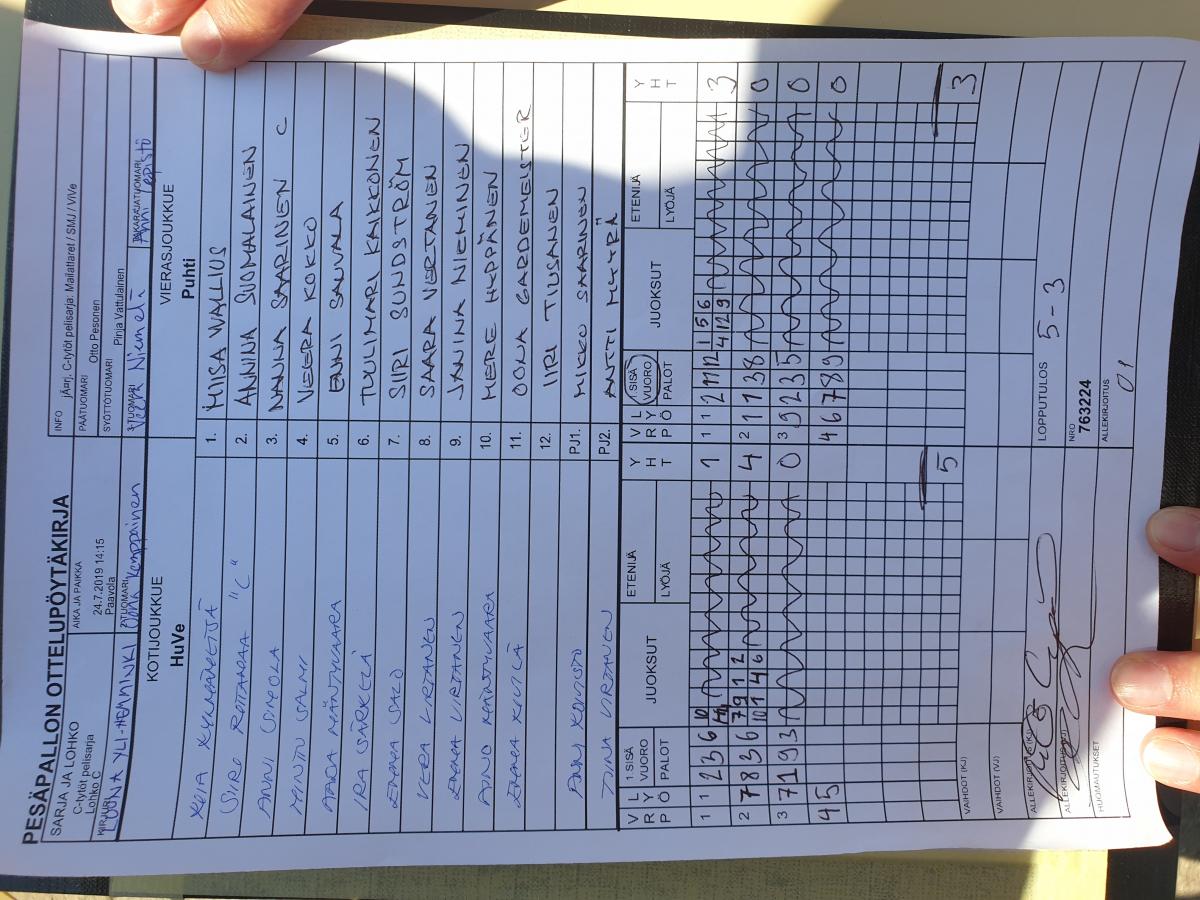 PESÄPALLON OTTELUPÖYTÄKIRJA
SARJA JA LOHKO
C-tytöt pelisarja
Lohko C
AIKA JA PAIKKA
24.7.2019 14:15
Paavola
INFO jÄarj. C-tytöt pelisarja: Mailattaret / SMJ / ViVe
PÄÄTUOMARI Otto Pesonen
SYÖTTÖTUOMARI Pinja Vattulainen
KIRJURI
2-TUOMARI
3-TUOMARI Veera Niemelä
TAKARAJATUOMARI Anni
KOTIJOUKKUE
HuVe
VIERASJOUKKUE
Puhti
1. MIISA WALLIUS
2. ANNINA SUOMALAINEN
ANNI SIMOLA 3. NANNA SAARINEN C
MINTTU SALMI 4. VEERA KOKKO
AADA MÄNTYVAARA 5. ENNI SAUVALA
IRA SÄRKELÄ 6. TUULIMARI KAKKONEN
EMMA SALO 7. SIIRI SUNDSTRÖM
VERA VIRTANEN 8. SAARA VERTANEN
EMMA VIRTANEN 9. JANINA NIEMINEN
AINO MÄNTYVAARA 10. MERE HYPPÄNEN
11. OONA GARDEMEISTER
12. IIRI TIUSANEN
PJ1. MIKKO SAARINEN
TIINA VIRTANEN PJ2. ANTTI MYYRÄ
VRP LYÖ 1.SISÄ VUORO PALOT JUOKSUT ETENIJÄ LYÖJÄ YHT
VRP LYÖ 1.SISÄ VUORO PALOT JUOKSUT ETENIJÄ LYÖJÄ YHT
1 1 2 3 6 1
1 1 2 11 12 1 5 6 3
4 12 9
2 7 8 3 6 7 9 1 2 4
10 1 4 6
2 1 1 3 8 0
3 7 1 9 3 0
3 9 2 3 5 0
4 5
4 6 7 8 9 0
5
3
VAIHDOT (KJ)
VAIHDOT (VJ)
LOPPUTULOS 5 - 3
ALLEKIRJOITUS (KJ)
ALLEKIRJOITUS (VJ)
NRO
763224
ALLEKIRJOITUS
HUOMAUTUKSET